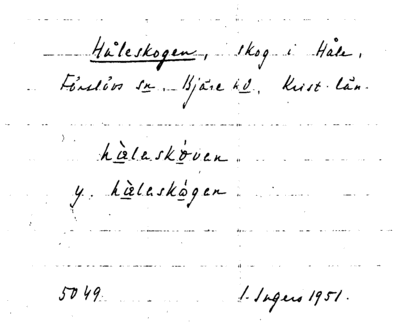 Håleskogen, skog i Håle,
Förslövs sn. Bjäre hd, Krist. län.
hàleskóven
y. hàleskógen
5049 I. Ingers 1951.